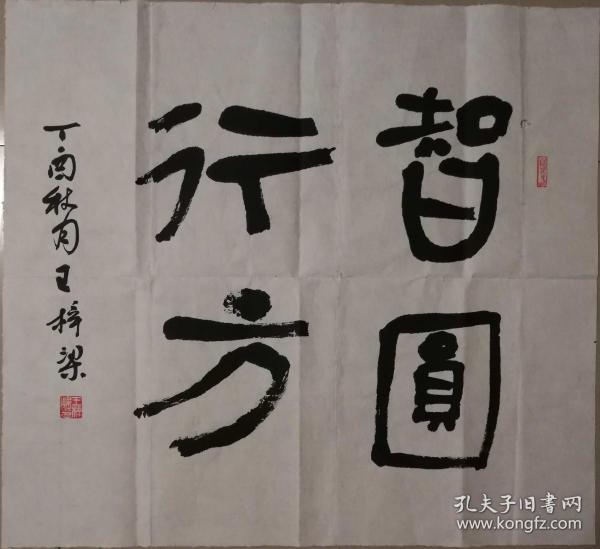 智圓
行方
丁酉秋月王梓梁
孔夫子旧书网
www.kongfz.com